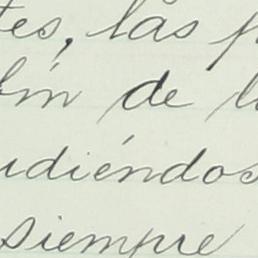 tes, las p
fin de l
udiéndos
siempre